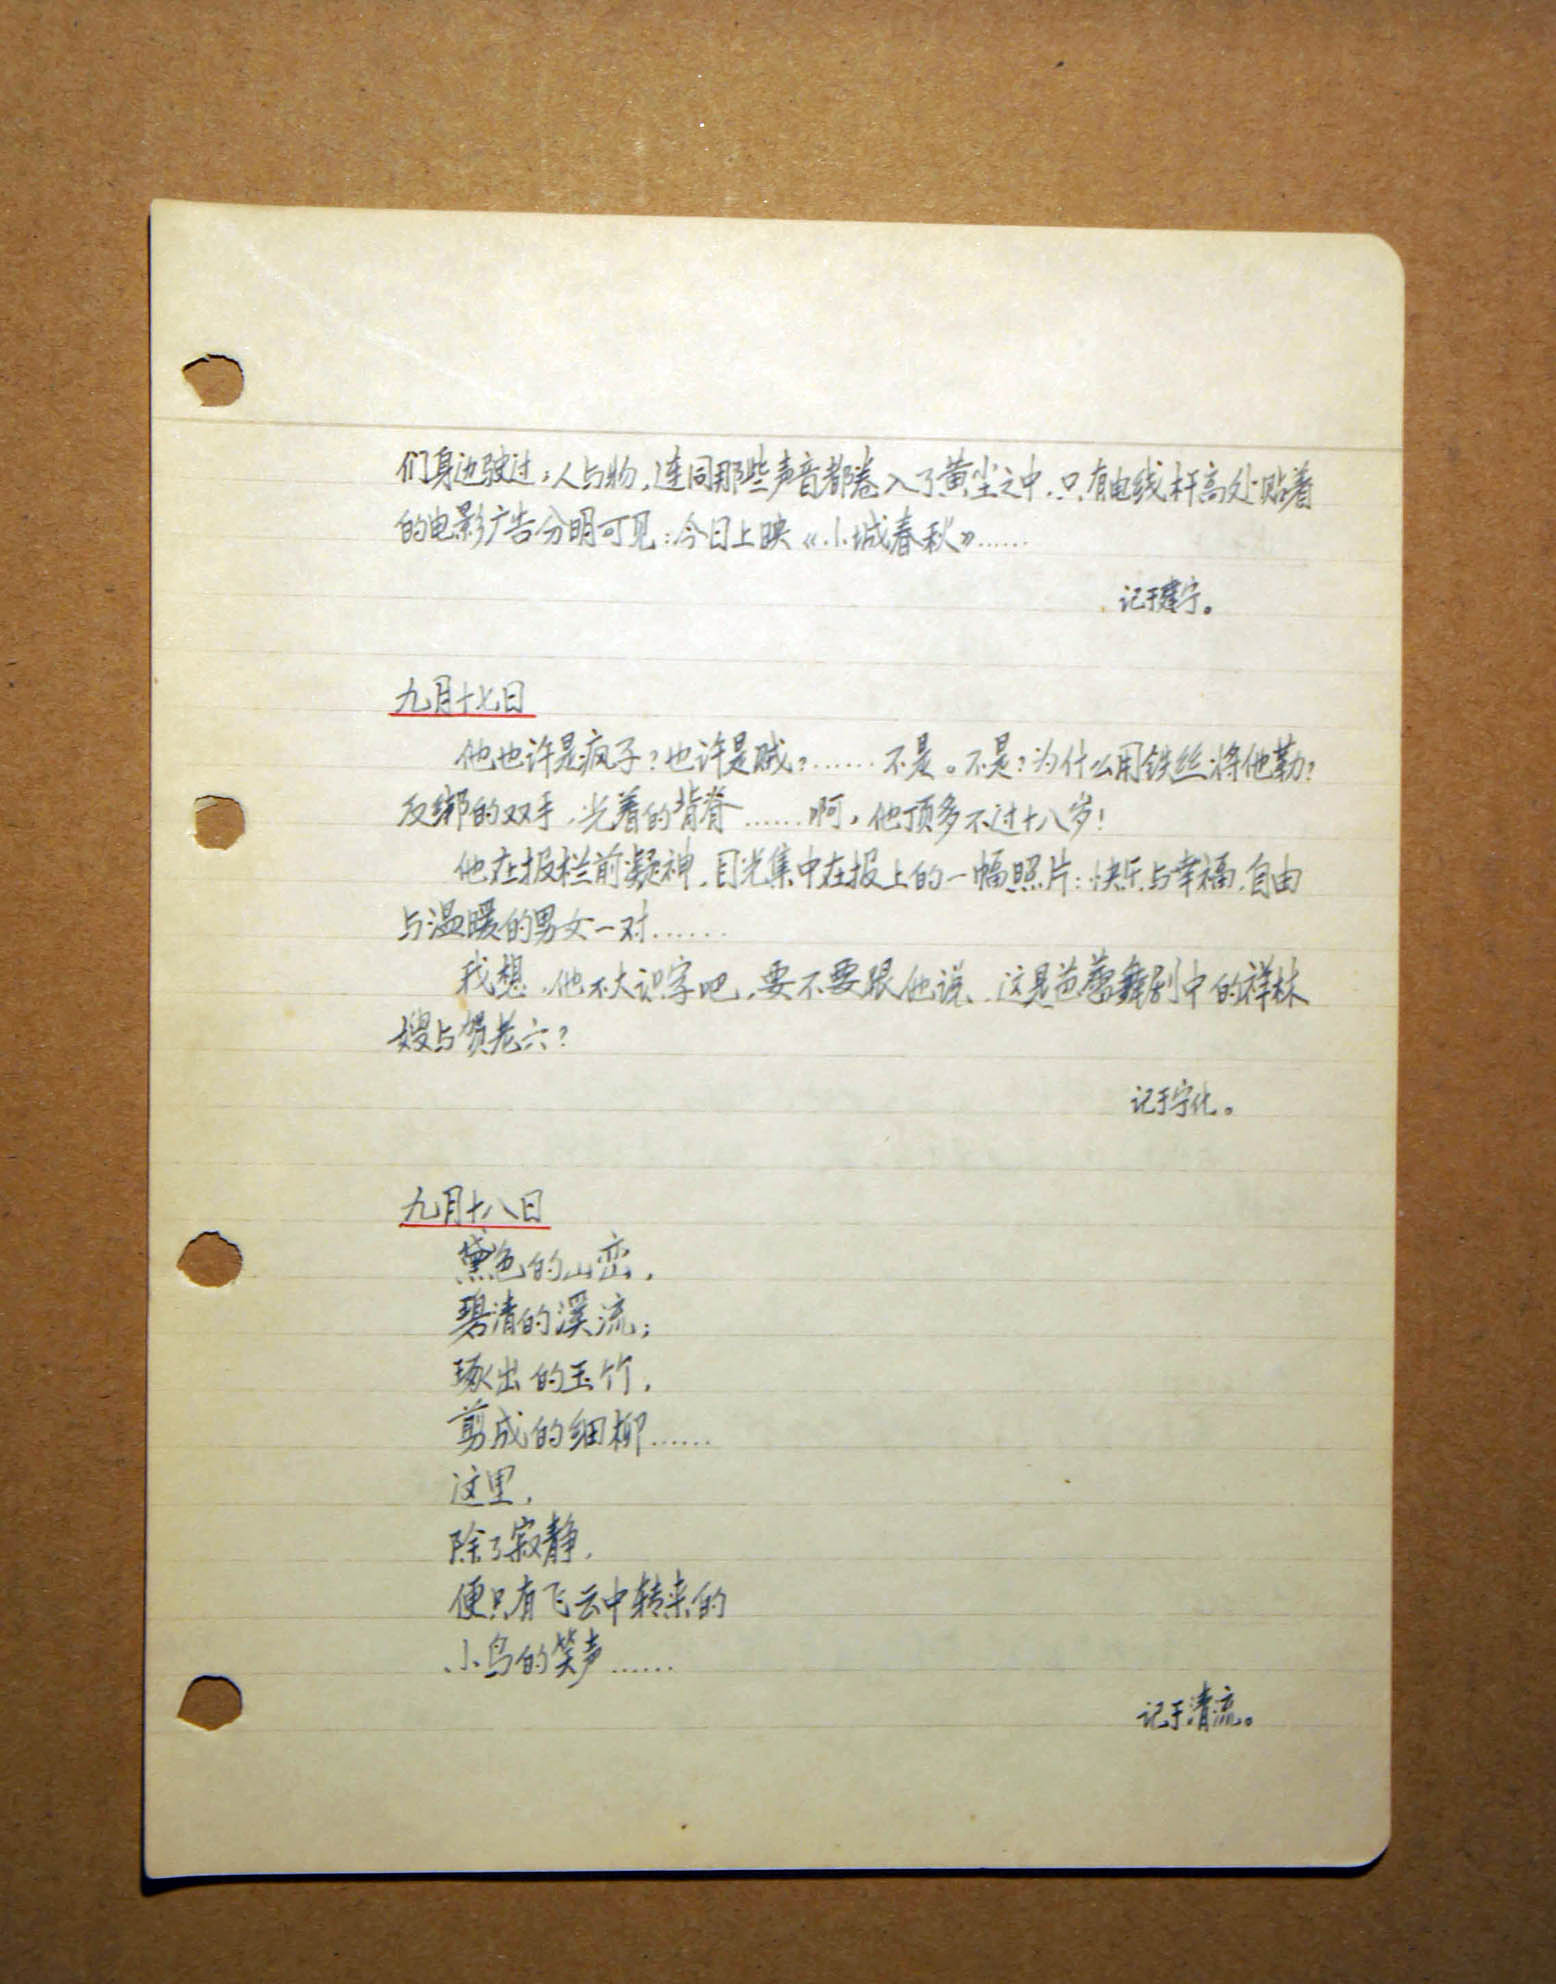 们身边驶过，人与物，连同那些声音都卷入了黄尘之中，只有电线杆高处贴着
的电影广告分明可见：今日上映《小城春秋》……
记于建宁。
九月十七日
他也许是疯子？也许是贼？……不是。不是？为什么用铁丝将他勒？
反绑的双手，光着的背脊……啊，他顶多不过十八岁！
他在报栏前凝神，目光集中在报上的一幅照片：快乐与幸福，自由
与温暖的男女一对……
我想，他不大识字吧，要不要跟他说，这是芭蕾舞剧中的祥林
嫂与贺老六？
记于宁化。
九月十八日
黛色的山峦，
碧清的溪流；
琢出的玉竹，
剪成的细柳……
这里，
除了寂静，
便只有飞云中转来的
小鸟的笑声……
记于清流。